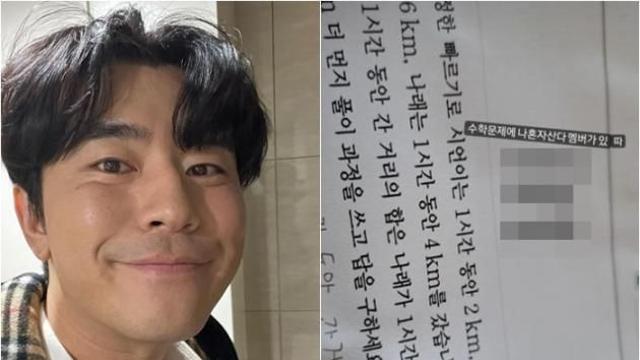 수학문제에 나혼자산다 멤버가 있 따
정한 빠르기로 시언이는 1시간 동안 2 km.
6 km, 나래는 1시간 동안 4 km를 갔습니
1시간 동안 간 거리의 합은 나래가 1시간
더 먼지 풀이 과정을 쓰고 답을 구하세요